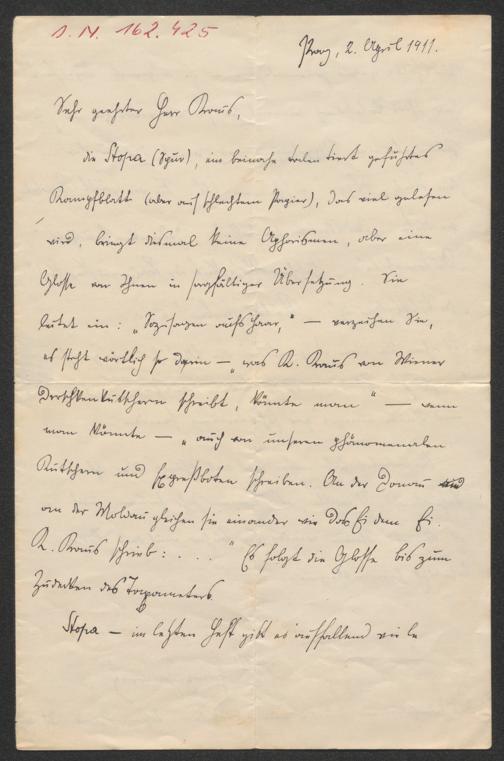 I. N. 162.425
Prag, 2. April 1911.
Sehr geehrter Herr Kraus,
die Stopa (Spur), ein beinahe talentiert geführtes
Kampfblatt (aber auf schlechtem Papier), das viel gelesen
wird, bringt diesmal keine Aphorismen, aber eine
Glosse von Ihnen in sorgfältiger Übersetzung. Sie
leitet ein: „Sozusagen aufs Haar," — verzeihen Sie,
es steht wörtlich so darin — „was K. Kraus von Wiener
Droschkenkutschern schreibt, könnte man" — wenn
man könnte — „auch von unseren phänomenalen
Kutschern und Expreßboten schreiben. An der Donau und
an der Moldau gleichen sie einander wie das Ei dem Ei.
K. Kraus schrieb: . . . ." Es folgt die Glosse bis zum
Zudecken des Taxameters.
Stopa — im letzten Heft gibt es auffallend viele